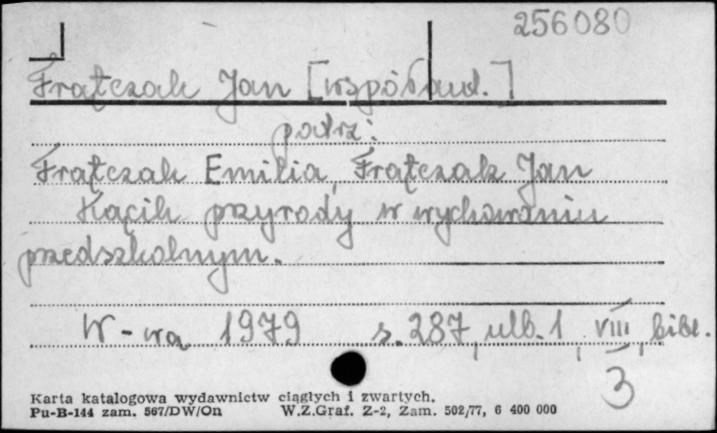 256080
Frątczak Jan [współaut.]
patrz:
Frątczak Emilia, Frątczak Jan
Kącik przyrody w wychowaniu
przedszkolnym.
W-wa 1979 s. 287, nlb. 1, VIII, bibl.
3
Karta katalogowa wydawnictw ciągłych i zwartych.
Pu-B-144 zam. 567/DW/On W.Z.Graf. Z-2, Zam. 502/77, 6 400 000